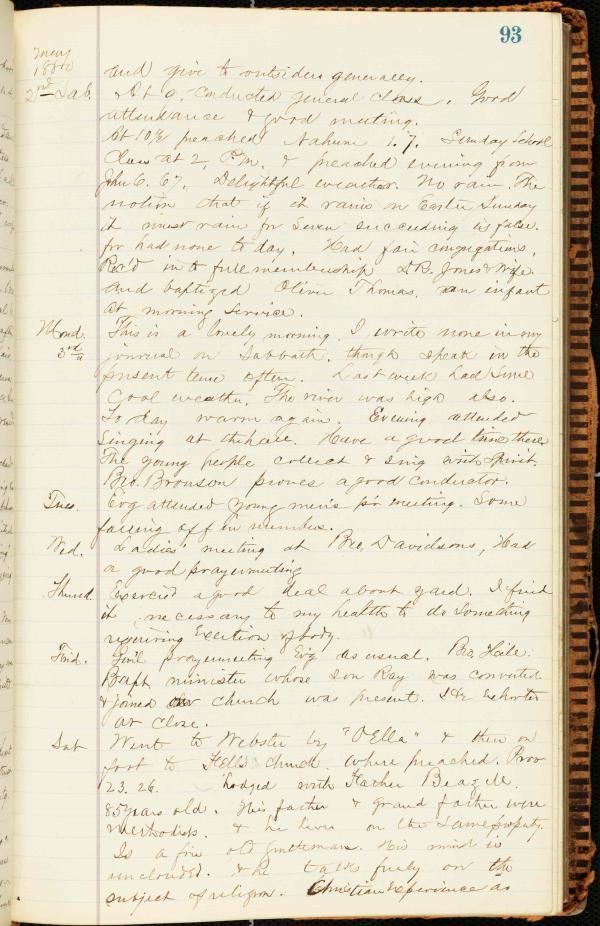 93
May
1880
and give to outsiders generally.
2nd Sab. At 9, conducted general class. Good
attendance & good meeting.
At 10½ preached Nahum 1.7. Sunday School
Class at 2, P.M. & preached evening from
John 6. 67. Delightful weather. No rain. The
notion that if it rains on Easter Sunday
it must rain for Seven succeeding is false.
for had none to day. Had fair congregations,
Rec'd into full membership D.B. Jones & Wife.
and baptized Oliver Thomas, an infant
at morning service.
Mond. This is a lovely morning. I write none in my
3rd journal on Sabbath, though speak in the
present tense often. Last week had some
Cool weather. The river was high also.
To day warm again. Evening attended
Singing at the hall. Have a good time there
The young people collect & sing with Spirit.
Bro. Bronson proves a good conductor.
Tues. Ev'g attended Young men's pr meeting. Some
falling off in number.
Wed. Ladies' meeting at Bro, Davidsons, Had
a good prayermeeting
Thursd. Exercis'd a good deal about yard. I find
it necessary to my health to do something
requiring Exertion of body.
Frid. Gen'l prayermeeting Ev'g as usual. Bro. Haile
Bapt. minister whose son Ray was converted
& joined our church was present. He exhorted
at close.
Sat Went to Webster by "O'Ella" & then on
foot to Fells Church. where preached. Prov
23. 26. Lodged with Father Beazell.
85 years old. His father & grand father were
methodists. & he lives on the same property.
Is a fine old gentleman. His mind is
unclouded. & he talks freely on the
subject of religion. Christian experience as